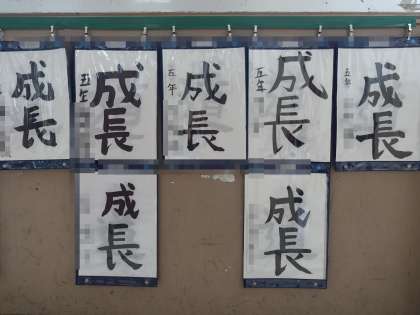 成長
五年
成長
五年
成長
五年
成長
五年
成長
成長
成長